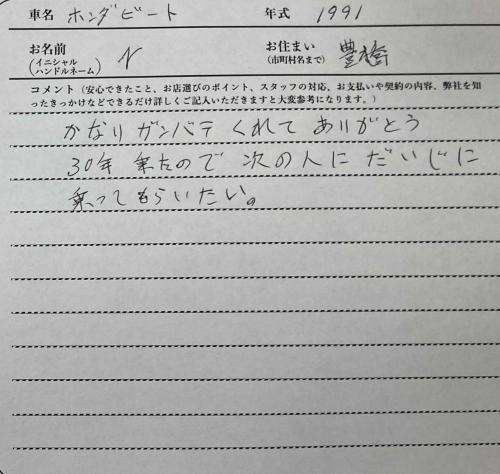 車名 ホンダビート 年式 1991
お名前 (イニシャル ハンドルネーム) N お住まい (市町村名まで) 豊橋
コメント(安心できたこと、お店選びのポイント、スタッフの対応、お支払いや契約の内容、弊社を知
ったきっかけなどできるだけ詳しくご記入いただきますと大変参考になります。)
かなりガンバテくれてありがとう
30年乗たので次の人にだいじに
乗ってもらいたい。